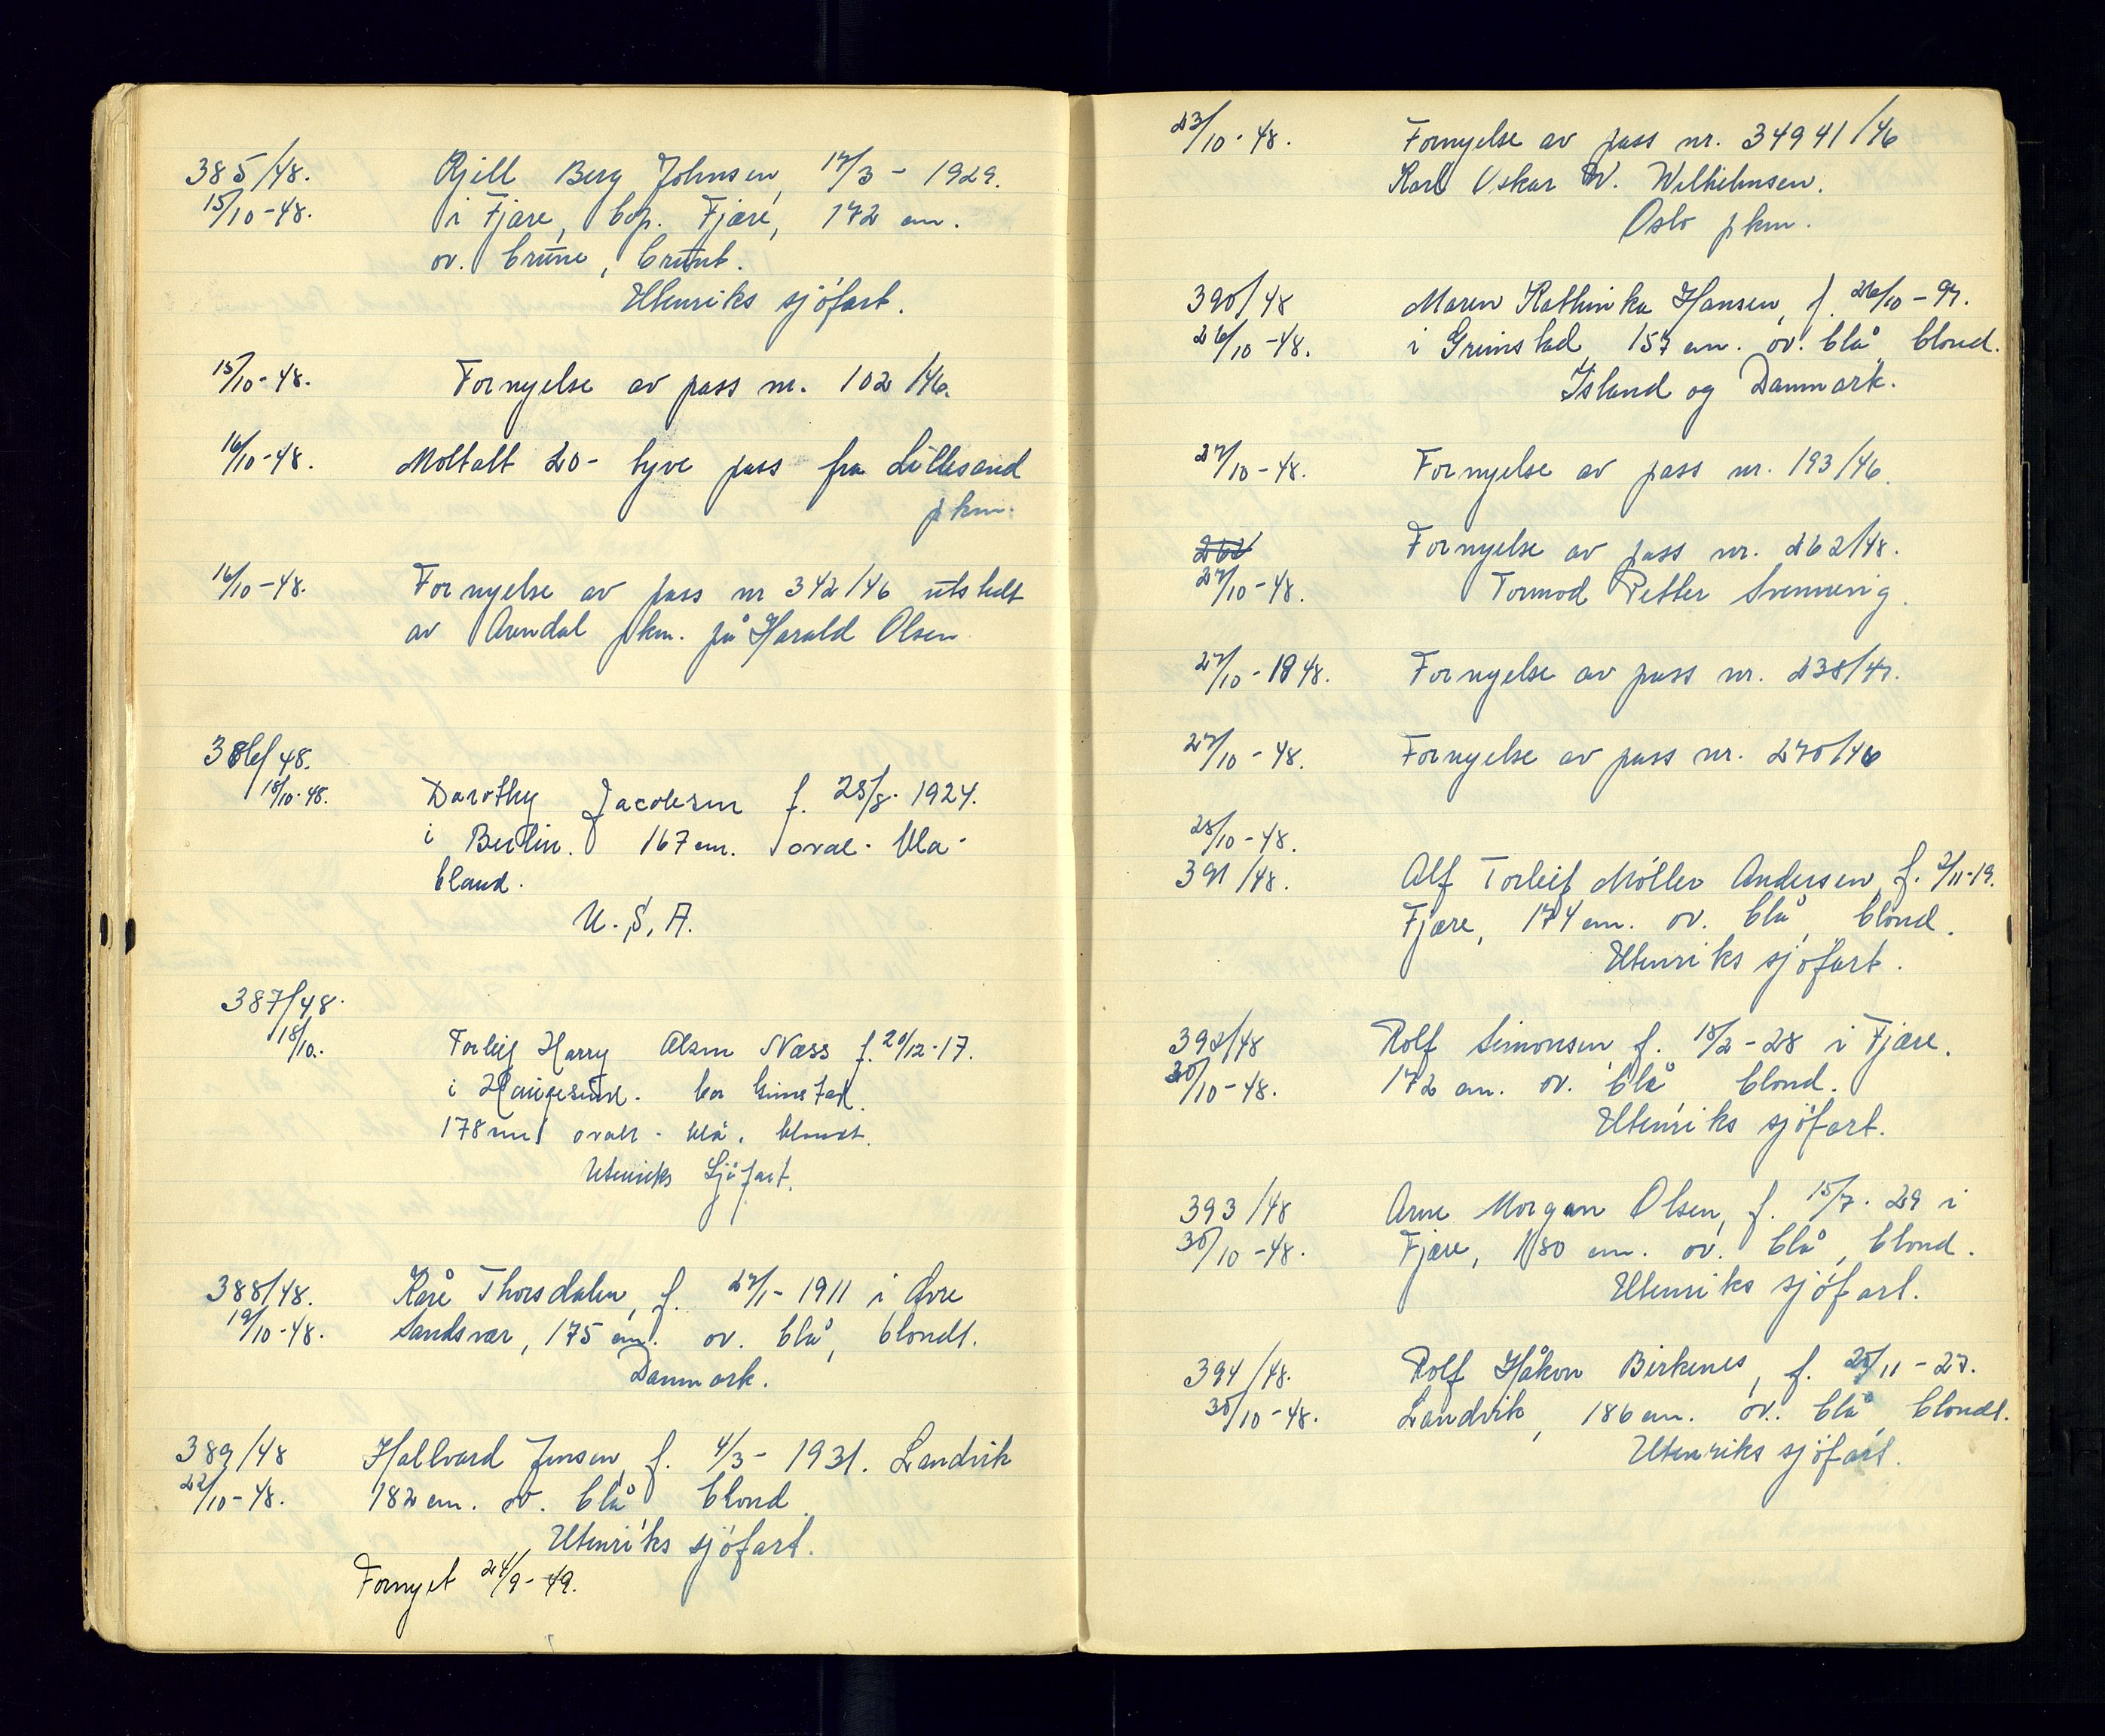 385/48.
15/10-48.
Kjell Berg Johnsen, 17/3 - 1929.
i Fjære, bop. Fjære, 172 cm.
ov. brune, brunt.
Utenriks sjöfart.
15/10-48.
Fornyelse av pass nr. 102/46.
16/10-48.
Mottatt 20- tyve pass fra Lillesand
pkm.
16/10-48.
Fornyelse av pass nr 342/46 utstedt
av Arendal pkm. på Harald Olsen
386/48.
18/10-48.
Dorothy Jacobsen f. 25/8-1924.
i Berlin. 167 cm. oval- bla-
bland.
U.S.A.
387/48.
18/10.
Torleif Harry Olsen Næss f. 20/12-17.
i Haugesund. bor Grimstad.
178 cm oval - blå. blondt.
Utenriks Sjöfart.
388/48.
19/10-48.
Kåre Thorsdalen, f. 27/1- 1911 i Øvre
Sandsvær, 175 cm. ov. blå, blondt.
Danmark.
389/48
22/10-48.
Hallvard Jensen, f. 4/3- 1931. Landvik
182 cm. ov. blå blond.
Utenriks sjöfart.
Fornyet 24/9-49.
23/10-48.
Fornyelse av pass nr. 34941/46
Karl Oskar W. Wilhelmsen.
Oslo pkm.
390/48
26/10-48.
Maren Kathinka Hansen, f. 26/10-97.
i Grimstad, 157 cm. ov. blå blond.
Island og Danmark.
27/10-48.
Fornyelse av pass nr. 193/46.
262
27/10-48.
Fornyelse av pass nr. 262/48.
Tormod Petter Svennevig.
27/10-1948.
Fornyelse av pass nr. 238/47.
27/10-48.
Fornyelse av pass nr. 270/46
28/10-48.
391/48.
Alf Torleif Möller Andersen, f. 2/11-19.
Fjære, 174 cm. ov. blå, blond.
Utenriks sjöfart.
392/48
30/10-48.
Rolf Simonsen, f. 18/2-28 i Fjære.
172 cm. ov. blå blond.
Utenriks sjöfart.
393/48
30/10-48.
Arne Morgan Olsen, f. 15/7-29 i
Fjære, 180 cm. ov. blå, blond.
Utenriks sjöfart.
394/48.
30/10-48.
Rolf Håkon Birkenes, f. 25/11-27.
Landvik, 186 cm. ov. blå blondt.
Utenriks sjöfart.